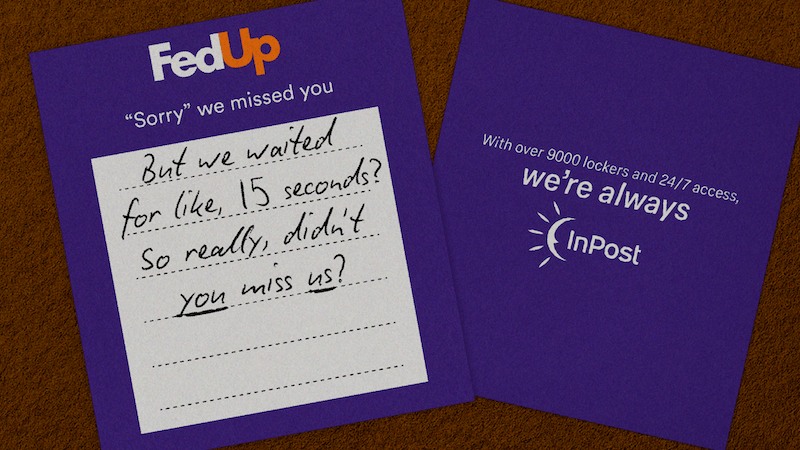 FedUp
“Sorry” we missed you
But we waited
for like, 15 seconds?
So really, didn't
you miss us?
With over 9000 lockers and 24/7 access,
we're always
InPost